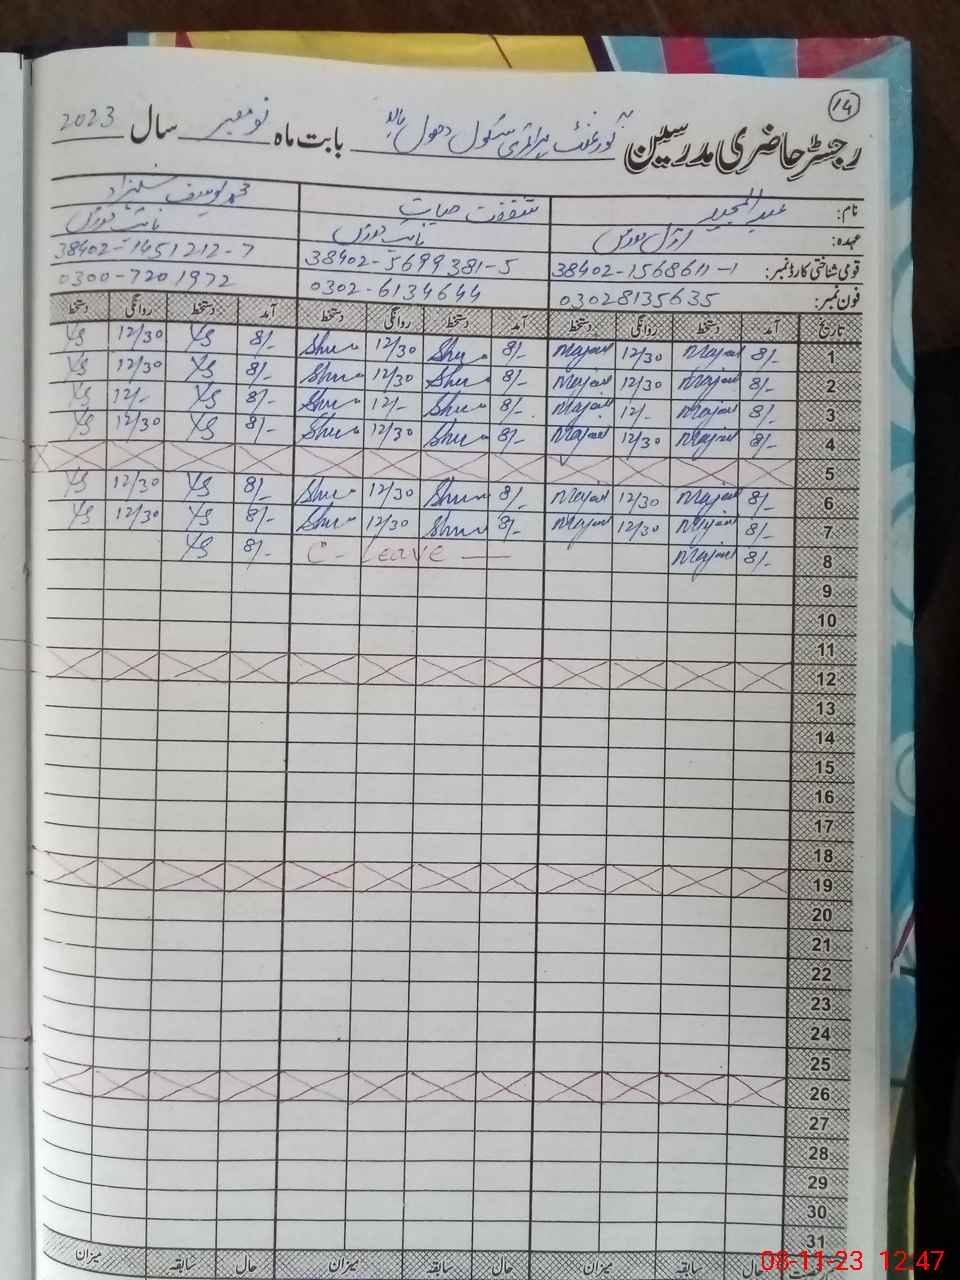 14
رجسٹر حاضری مدرسین گورنمنٹ پرائمری سکول دھول بالا بابت ماہ نومبر سال 2023
نام: عبدالمجید شفقت حیات محمد یوسف شہزاد
عہدہ: نائب مدرس نائب مدرس
قومی شناختی کارڈ نمبر: 38402-1568611-1 38402-5699381-5 38402-1451212-7
فون نمبر: 03028135635 0302-6134644 0300-7201972
تاریخ آمد دستخط روانگی دستخط آمد دستخط روانگی دستخط آمد دستخط روانگی دستخط
1 8/- Majeed 12/30 Majeed 8/- 12/30 8/- YS 12/30 YS
2 8/- Majeed 12/30 Majeed 8/- 12/30 8/- YS 12/30 YS
3 8/- Majeed 12/- Majeed 8/- 12/- 8/- YS 12/- YS
4 8/- Majeed 12/30 Majeed 8/- 12/30 8/- YS 12/30 YS
5
6 8/- Majeed 12/30 Majeed 8/- 12/30 8/- YS 12/30 YS
7 8/- Majeed 12/30 Majeed 8/- 12/30 8/- YS 12/30 YS
8 8/- Majeed C- Leave 8/- YS
9
10
11
12
13
14
15
16
17
18
19
20
21
22
23
24
25
26
27
28
29
30
31
حال سابقہ میزان حال سابقہ میزان حال سابقہ میزان
08-11-23 12:47